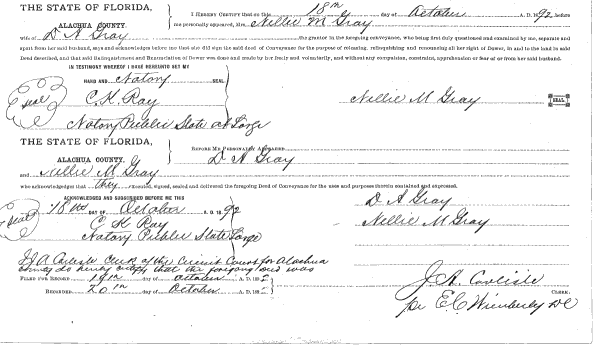 THE STATE OF FLORIDA,
ALACHUA COUNTY.
I HEREBY CERTIFY that on the 18th day of October A. D. 1892, before
me personally appeared, Mrs. Nellie M Gray
wife of D A Gray the grantor in the foregoing conveyance, who being first duly questioned and examined by me, separate and
apart from her said husband, says and acknowledges before me that she did sign the said deed of Conveyance for the purpose of releasing, relinquishing and renouncing all her right of Dower, in and to the land in said
Deed described, and that said Relinquishment and Renunciation of Dower was done and made by her freely and voluntarily, and without any compulsion, constraint, apprehension or fear of or from her said husband.
IN TESTIMONY WHEREOF I HAVE HEREUNTO SET MY
HAND AND Notary
Seal
C. K. Ray
Notary Public State at Large
Nellie M Gray
SEAL
THE STATE OF FLORIDA,
ALACHUA COUNTY.
BEFORE ME PERSONALLY APPEARED
D A Gray
and Nellie M Gray
who acknowledged that they executed, signed, sealed and delivered the foregoing Deed of Conveyance for the uses and purposes therein contained and expressed.
ACKNOWLEDGED AND SUBSCRIBED BEFORE ME THIS
18th DAY OF October A. D. 1892
Seal
C K Ray
Notary Public State Large
D A Gray
Nellie M Gray
I J A Carlisle Clerk of the Circuit Court for Alachua
county do hereby certify that the foregoing deed was
FILED FOR RECORD 19th day of October A. D. 1892
RECORDED 20th day of October A. D. 1892
J. A. Carlisle
CLERK.
pr E. C. Wimberley DC